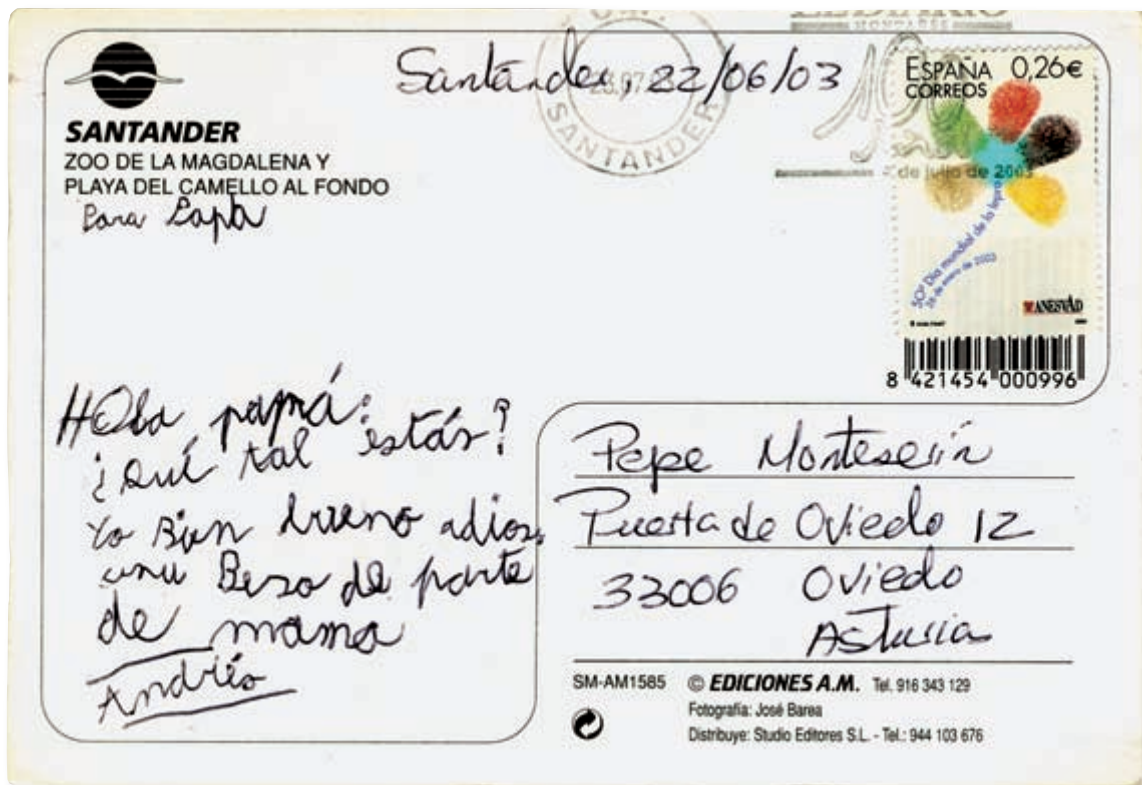 SANTANDER
ZOO DE LA MAGDALENA Y
PLAYA DEL CAMELLO AL FONDO
Para Papá
Santander, 22/06/03
SANTANDER
ESPAÑA 0,26€
CORREOS
de julio de 2003
50º Día mundial de la lepra
26 de enero de 2003
ANESVAD
8 421454 000996
HOla papá:
¿Qué tal estás?
Yo Bien bueno adios.
unu Beso de parte
de mama
Andrés
Pepe Monteserín
Puerta de Oviedo 12
33006 Oviedo
Asturias
SM-AM1585 © EDICIONES A.M. Tel. 916 343 129
Fotografía: José Barea
Distribuye: Studio Editores S.L. - Tel.: 944 103 676